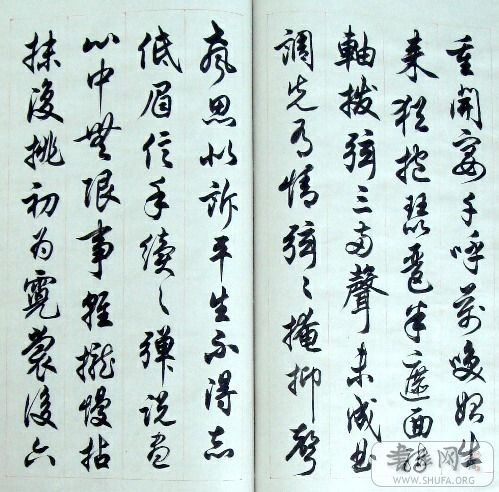 重開宴千呼萬喚始出
来猶抱琵琶半遮面轉
軸撥弦三両聲未成曲
調先有情弦〻掩抑聲
聲思似訴平生不得志
低眉信手續〻弹說盡
心中無限事輕攏慢拈
抹復挑初为霓裳後六
書法网
WWW.SHUFA.ORG